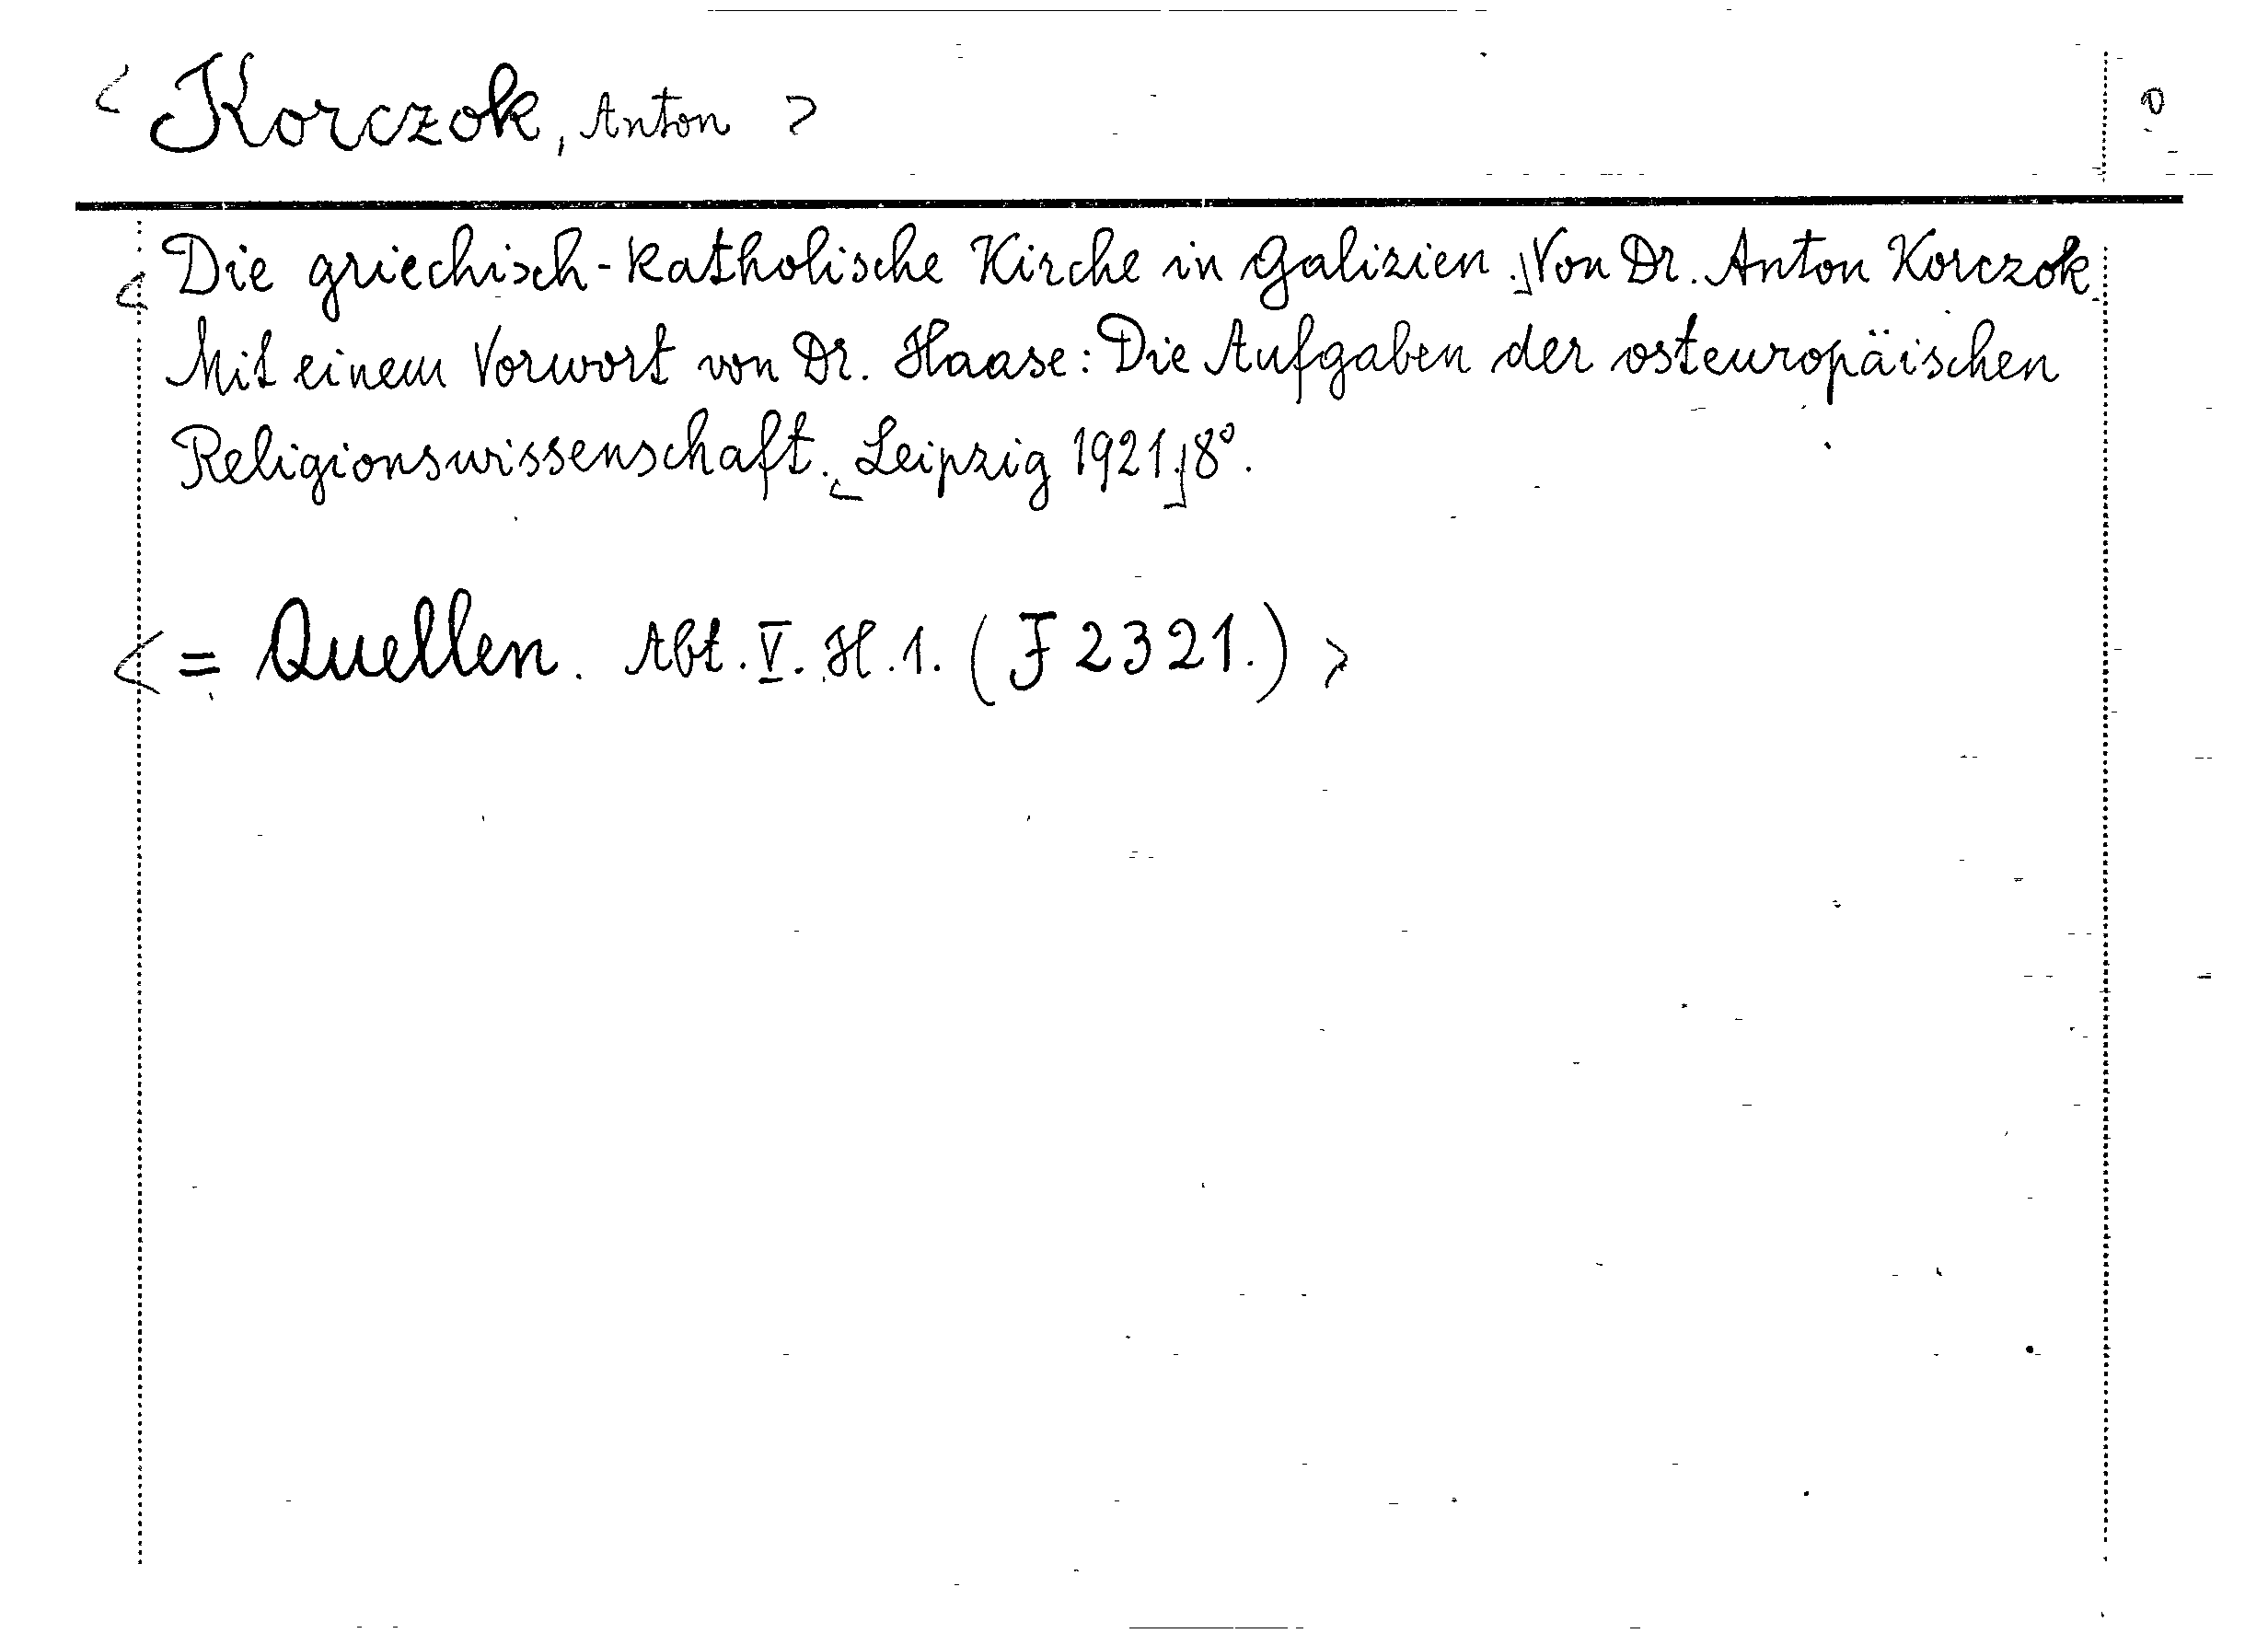 < Korczok, Anton >
0
< Die griechisch-katholische Kirche in Galizien.⌋ Von Dr. Anton Korczok.
Mit einem Vorwort von Dr. Haase: Die Aufgaben der osteuropäischen
Religionswissenschaft. ⌊Leipzig 1921.⌋ 8°.
< = Quellen. Abt. V. H. 1. (F 2321.) >